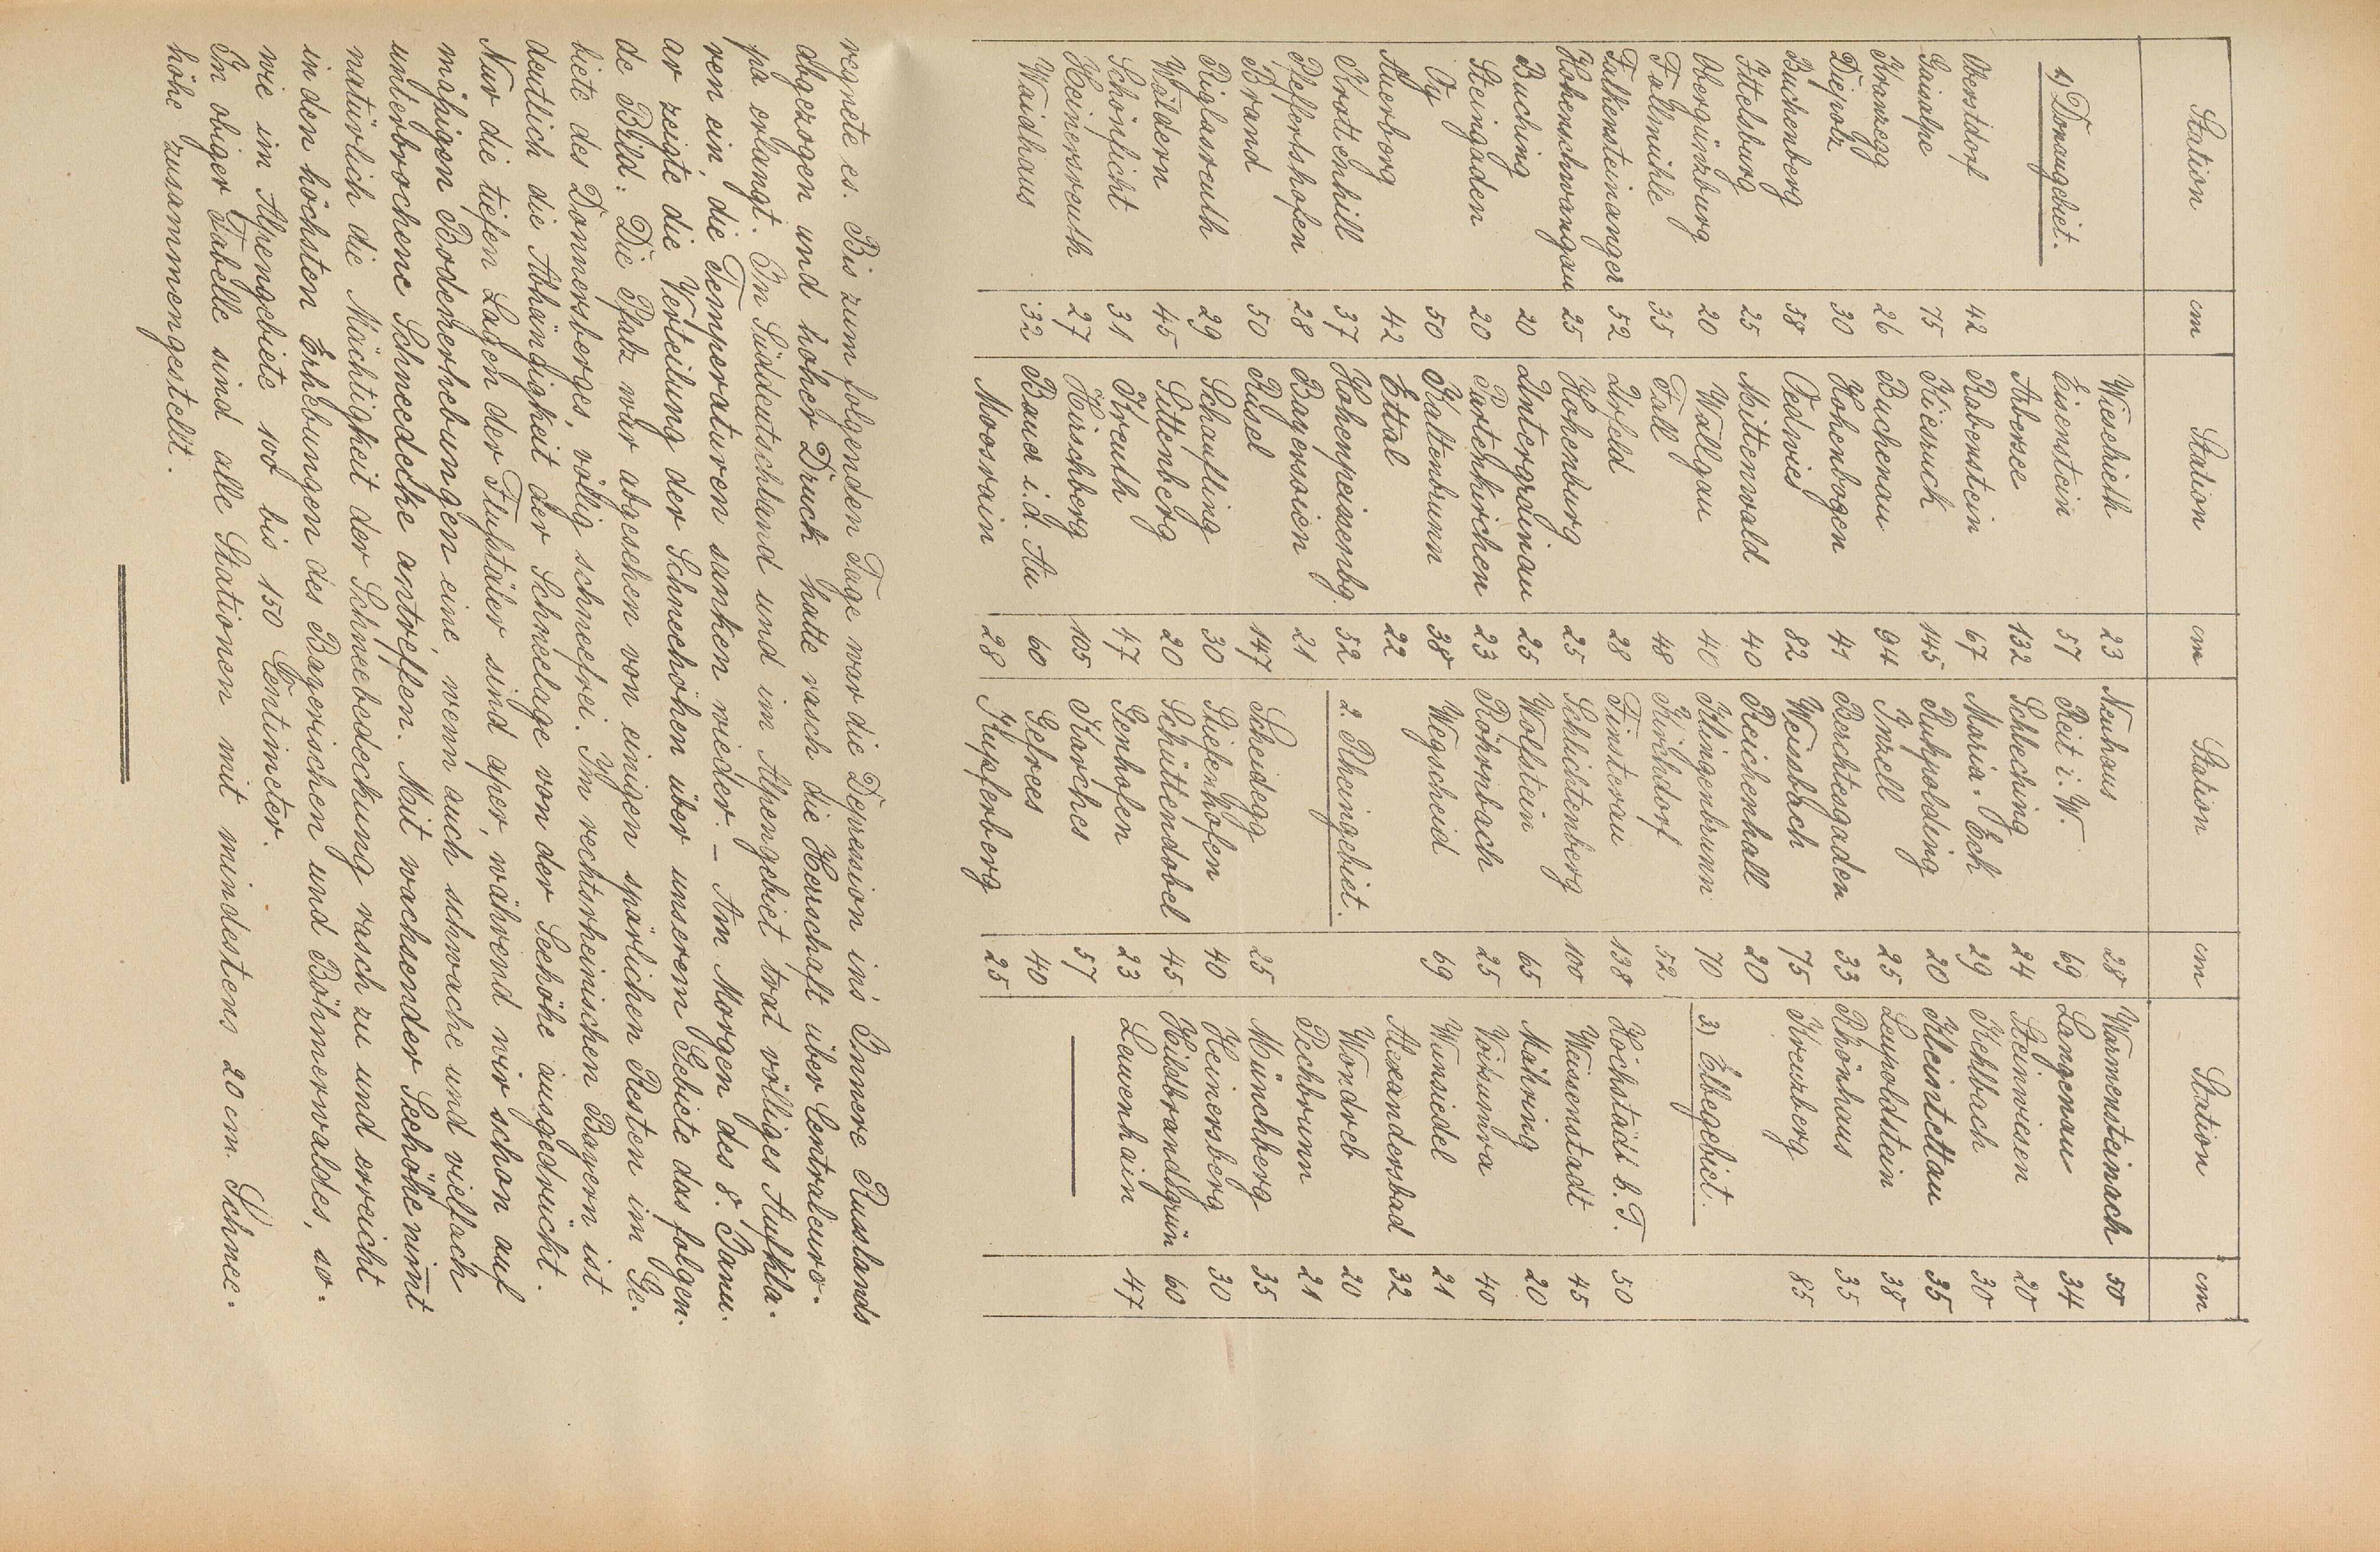 Station cm Station cm Station cm Station cm
Wiesrieth 23 Neuhaus 28 Warmensteinach 50
1) Donaugebiet. Eisenstein 57 Reit i. W. 69 Langenau 34
Arbersee 132 Schleching 24 Steinwiesen 20
Oberstdorf 42 Rabenstein 67 Maria-Eck 29 Kehlbach 30
Gaisalpe 75 Kiesruck 145 Ruhpolding 20 Kleintettau 35
Kranzegg 26 Buchenau 94 Inzell 25 Leupoldstein 38
Diepolz 30 Hohenbogen 41 Berchtesgaden 33 Rhönhaus 35
Buchenberg 58 Oedwies 82 Weissbach 75 Kreuzberg 85
Ittelsburg 25 Mittenwald 40 Reichenhall 20
Obergünzburg 20 Wallgau 40 Klingenbrunn 70 3) Elbegebiet.
Fallmühle 35 Fall 48 Kirchdorf 52
Falkensteinanger 52 Urfeld 28 Finsterau 138 Höchstädt b. T. 50
Hohenschwangau 25 Hohenburg 25 Schlichtenberg 100 Weisenstadt 45
Buching 20 Untergrainau 25 Wolfstein 65 Mähring 20
Steingaden 20 Partenkirchen 23 Röhrnbach 25 Voitsumra 40
Oy 50 Kaltenbrunn 38 Wegscheid 69 Wunsiedel 21
Auerberg 42 Ettal 22 Alexandersbad 32
Krottenhill 37 Hohenpeissenbg. 52 2. Rheingebiet. Wondreb 20
Pfeffertshofen 28 Bayersoien 21 Pechbrunn 21
Brand 50 Rusel 147 Scheidegg 25 Münchberg 35
Riglasreuth 29 Schaufling 30 Stiefenhofen 40 Heinersberg 30
Wäldern 45 Sittenberg 20 Schüttendobel 45 Hildbrandsgrün 60
Schönficht 31 Kreuth 47 Genhofen 23 Lauenhain 47
Heinersreuth 27 Hirschberg 105 Karches 57
Waidhaus 32 Bauer i. d. Au 60 Gefrees 40
Moosrain 28 Kupferberg 25
regnete es. Bis zum folgenden Tage war die Depression ins Innere Russlands
abgezogen und hoher Druck hatte rasch die Herrschaft über Centraleuro-
pa erlangt. In Süddeutschland und im Alpengebiet trat völliges Aufkla-
ren ein, die Temperaturen sanken wieder. – Am Morgen des 8. Janu-
ar zeigte die Verteilung der Schneehöhen über unserem Gebiete das folgen-
de Bild: Die Pfalz war abgesehen von einigen spärlichen Resten im Ge-
biete des Donnersberges, völlig schneefrei. Im rechtsrheinischen Bayern ist
deutlich die Abhängigkeit der Schneelage von der Seehöhe ausgedrückt.
Nur die tiefen Lagen der Flußtäler sind aper, während wir schon auf
mäßigen Bodenerhebungen eine, wenn auch schwache und vielfach
unterbrochene Schneedecke antreffen. Mit wachsender Seehöhe nim̄t
natürlich die Mächtigkeit der Schneebedeckung rasch zu und erreicht
in den höchsten Erhebungen des Bayerischen und Böhmerwaldes, so-
wie im Alpengebiete 100 bis 150 Centimeter.
In obiger Tabelle sind alle Stationen mit mindestens 20 cm Schnee-
höhe zusammengestellt.